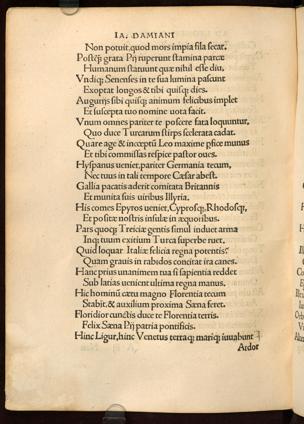 IA. DAMIANI
Non potuit, quod mors impia fila secat.
Postq̃ grata Pij ruperunt stamina parcæ
Humanum statuunt quæ nihil esse diu,
Vndiq; Senenses in te sua lumina pascunt
Exoptat longos & tibi quisq; dies.
Auguriis sibi quisq; animum felicibus implet
Et suscepta tuo nomine uota facit.
Vnum omnes pariter te poscere fata loquuntur,
Quo duce Turcarum stirps scelerata cadat.
Quare age & inceptũ Leo maxime pfice munus
Et tibi commissas respice pastor oues.
Hyspanus ueniet, pariter Germania tecum,
Nec tuus in tali tempore Cæsar abest.
Gallia pacatis aderit comitata Britannis
Et munita suis uiribus Illyria.
His comes Epyros ueniet, Cyprosq; Rhodosq;,
Et positæ nostris insulæ in æquoribus.
Pars quoq; Treiciæ gentis simul induet arma
Inq; tuum exitium Turca superbe ruet.
Quid loquar Italiæ felicia regna potentis:
Quam grauis in rabidos concitat ira canes.
Hanc prius unanimem tua si sapientia reddet
Sub latias uenient ultima regna manus.
Hic hominũ cœtu magno Florentia tecum
Stabit, & auxilium proxima Sæna feret.
Floridior cunctis duce te Florentia terris.
Felix Sæna Pij patria pontificis.
Hinc Ligur, hinc Venetus terraq; mariq; iuuabunt
Ardor